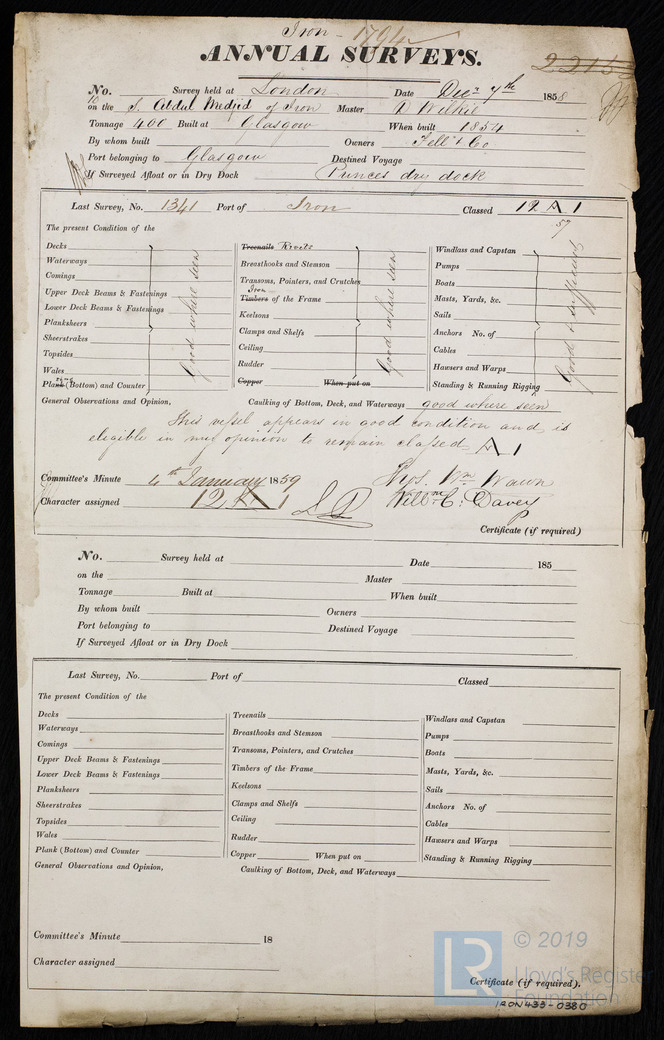 Iron 1794
ANNUAL SURVEYS.
No. Survey held at London Date Decr 7th 1858
on the S. Abdul Medjid of Iron Master D Wilkie
Tonnage 400 Built at Glasgow When built 1854
By whom built Owners Fell & Co
Port belonging to Glasgow Destined Voyage
If Surveyed Afloat or in Dry Dock Princes dry dock
Last Survey, No. 1341 Port of Iron Classed 12 A 1
57
The present Condition of the
Decks
Waterways
Comings
Upper Deck Beams & Fastenings
Lower Deck Beams & Fastenings
Planksheers
Sheerstrakes
Topsides
Wales
Plank (Bottom) and Counter
Good where seen
Treenails Rivets
Breasthooks and Stemson
Transoms, Pointers, and Crutches
Iron
Timbers of the Frame
Keelsons
Clamps and Shelfs
Ceiling
Rudder
Copper When put on
Good where seen
Windlass and Capstan
Pumps
Boats
Masts, Yards, &c.
Sails
Anchors No. of
Cables
Hawsers and Warps
Standing & Running Rigging
Good & sufficient
General Observations and Opinion, Caulking of Bottom, Deck, and Waterways good where seen
This vessel appears in good condition and is
eligible in my opinion to remain classed A 1
Committee's Minute 4th January 1859
Character assigned 12 A 1
Wm Wawn
Willm C. Davey
Certificate (if required)
No. Survey held at Date 185
on the Master
Tonnage Built at When built
By whom built Owners
Port belonging to Destined Voyage
If Surveyed Afloat or in Dry Dock
Last Survey, No. Port of Classed
The present Condition of the
Decks
Waterways
Comings
Upper Deck Beams & Fastenings
Lower Deck Beams & Fastenings
Planksheers
Sheerstrakes
Topsides
Wales
Plank (Bottom) and Counter
Treenails
Breasthooks and Stemson
Transoms, Pointers, and Crutches
Timbers of the Frame
Keelsons
Clamps and Shelfs
Ceiling
Rudder
Copper When put on
Windlass and Capstan
Pumps
Boats
Masts, Yards, &c.
Sails
Anchors No. of
Cables
Hawsers and Warps
Standing & Running Rigging
General Observations and Opinion, Caulking of Bottom, Deck, and Waterways
Committee's Minute 18
Character assigned
Certificate (if required).
LR © 2019
Lloyd's Register
Foundation
IRON433-0380